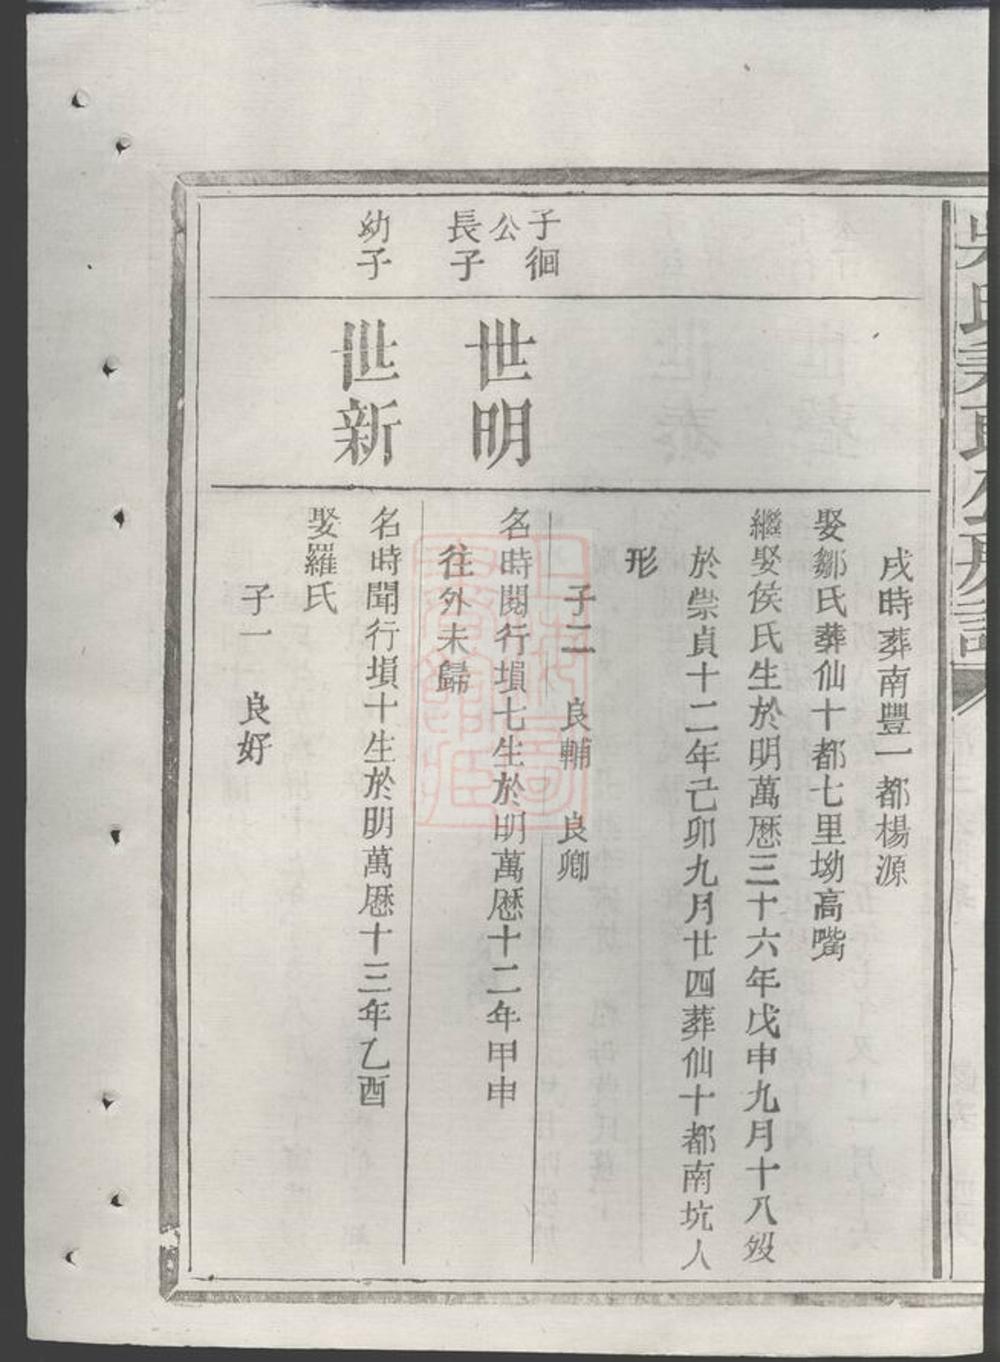 戌時葬南豐一都楊源
娶鄒氏葬仙十都七里坳高嘴
繼娶侯氏生於明萬厯三十六年戊申九月十八歿
於崇貞十二年己卯九月廿四葬仙十都南坑人
形
子二 良輔 良卿
子徊
公
長子
世明
名時閱行塤七生於明萬厯十二年甲申
往外未歸
幼子
世新
名時聞行塤十生於明萬厯十三年乙酉
娶羅氏
子一 良好